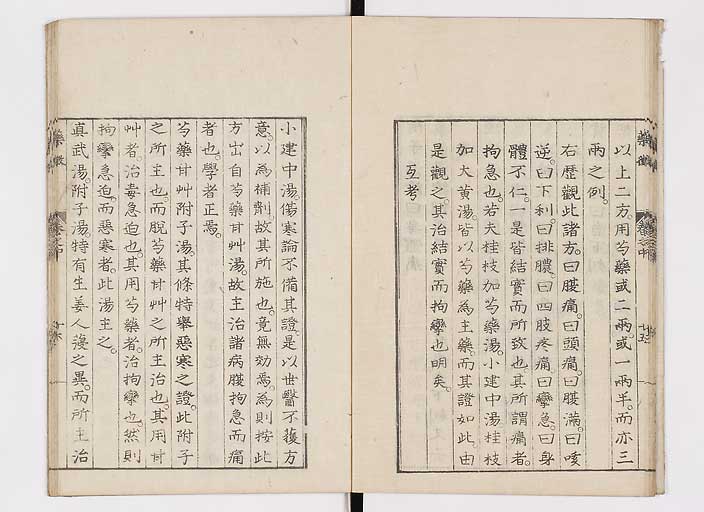 以上二方用芍藥或二兩或一兩半。而亦三
兩之例。
右歷觀此諸方。曰腹痛。曰頭痛。曰腹滿。曰咳
逆。曰下利。曰排膿。曰四肢疼痛。曰攣急。曰身
體不仁。一是皆結實而所致也。其所謂痛者。
拘急也。若夫桂枝加芍藥湯。小建中湯桂枝
加大黃湯。皆以芍藥為主藥。而其證如此。由
是觀之。其治結實而拘攣也明矣。
互考
小建中湯。傷寒論不備其證。是以世醫不獲方
意。以為補劑。故其所施也。竟無効焉。為則按此
方出自芍藥甘艸湯。故主治諸病腹拘急而痛
者也。學者正焉。
芍藥甘艸附子湯。其條特舉惡寒之證。此附子
之所主也。而脫芍藥甘艸之所主治也。其用甘
艸者。治毒急迫也。其用芍藥者。治拘攣也。然則
拘攣急迫。而惡寒者。此湯主之。
真武湯。附子湯。特有生姜人葠之異。而所主治
藥徵
卷之中
十五
藥徵
卷之中
十六